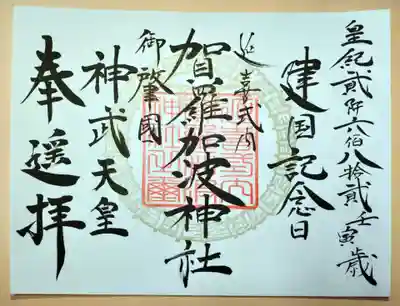 皇紀貳阡六佰八拾貳壬寅歳
建国記念日
延喜式内
賀羅加波神社
御肇國
神武天皇
奉遥拝